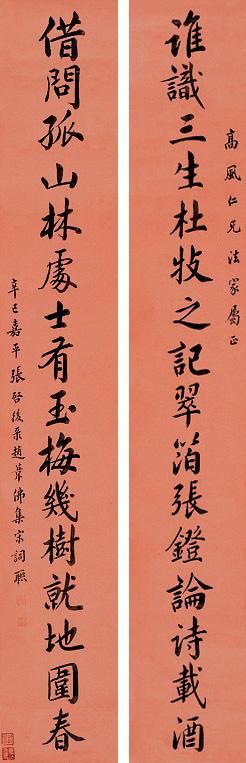 高風仁兄法家屬正
誰識三生杜牧之記翠箔張鐙論詩載酒
借問孤山林處士有玉梅幾樹就地圍春
辛巳嘉平張啓後采趙葦佛集宋詞聯